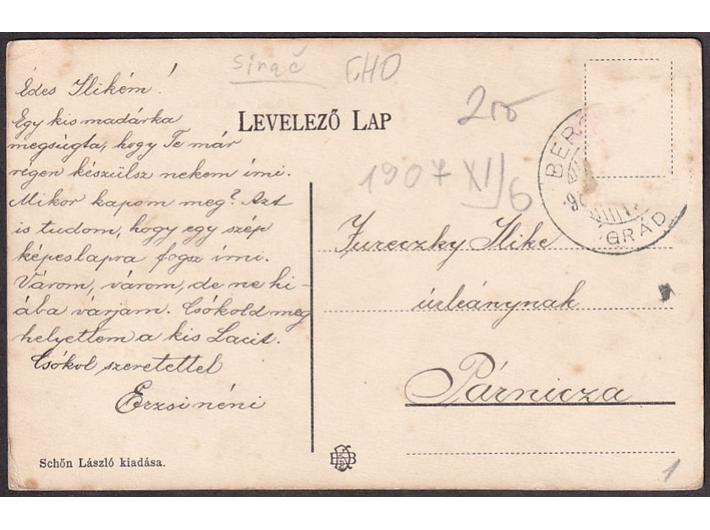 Sirač CHO
Édes Ilikém!
Egy kis madárka
megsúgta, hogy Te már
régen készülsz nekem írni.
Mikor kapom meg? Azt
is tudom, hogy egy szép
képeslapra fogsz írni.
Várom, várom, de ne hi-
ába várjam. Csókold meg
helyettem a kis Lacit.
Csókol szeretettel
Erzsi néni
Schőn László kiadása.
LEVELEZŐ LAP
1907 XI/6
BER
GRÁD
Jureczky Ilike
úrleánynak
Párnicza
1